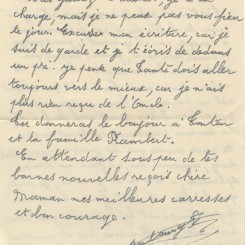 charge, mais je ne peux pas vous fixer
le jour. Excuser mon écriture, car je
suis de garde et je t'écris de dedans
un pré. Je pense que Tanté dois aller
toujours vers le mieux, car je n'ais
plus rien reçue de l'Oncle.
Tu donneras le bonjour à Tonton
et la famille Rambert.
En attendant sous peu de tes
bonnes nouvelles reçois chère
Maman mes meilleures carresses
et bon courage.